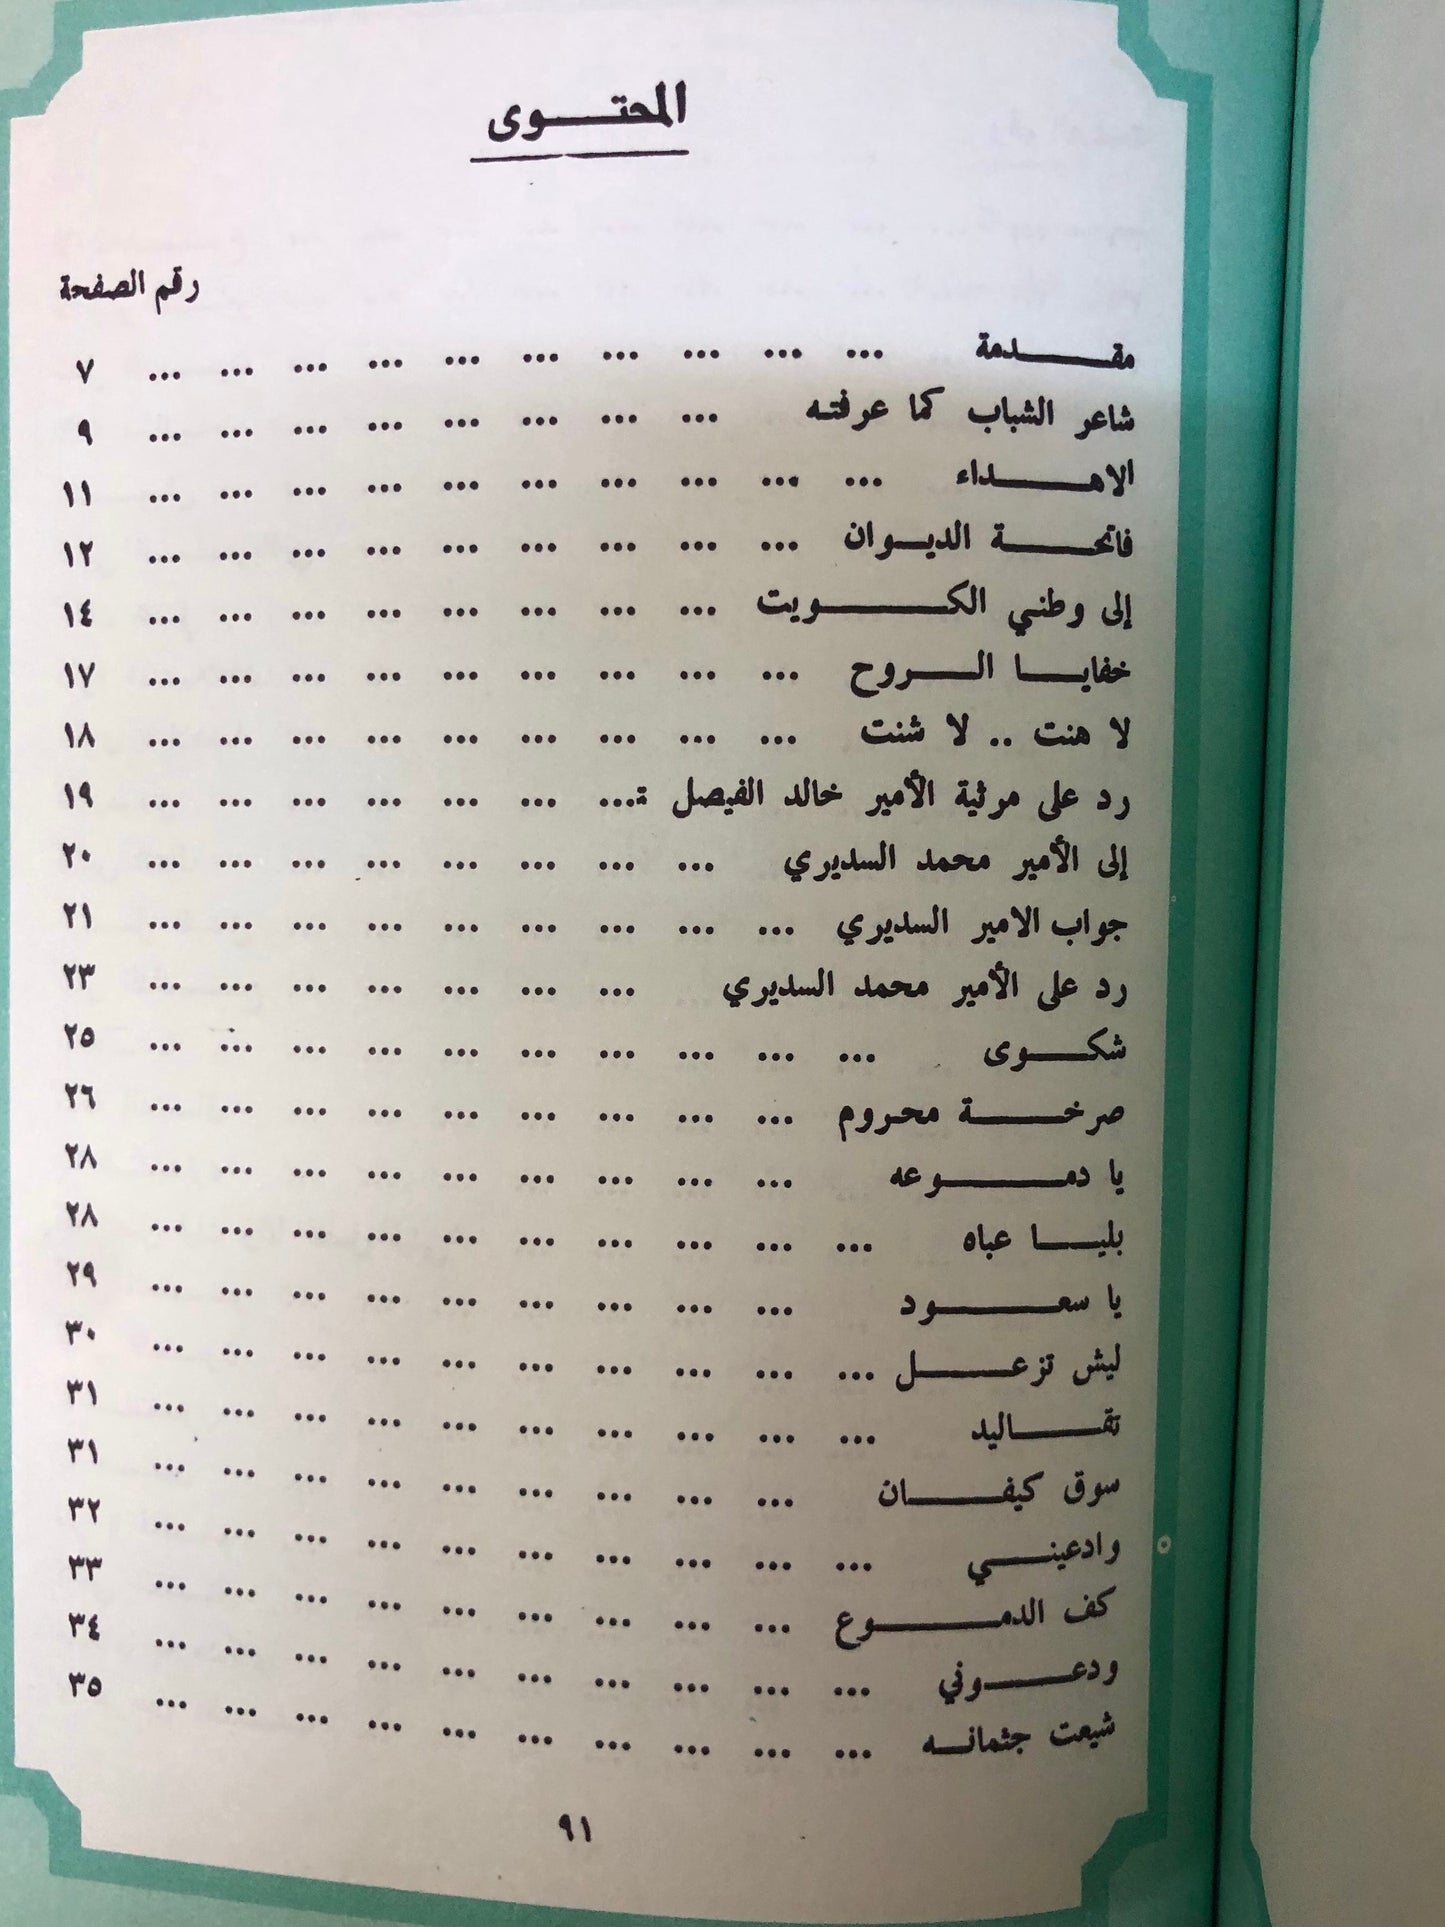 المحتوى
رقم الصفحة
مقدمة ... ... ... ... ... ... ... ... ... ... ٧
شاعر الشباب كما عرفته ... ... ... ... ... ... ... ... ٩
الاهداء ... ... ... ... ... ... ... ... ... ... ١١
فاتحة الديوان ... ... ... ... ... ... ... ... ... ١٢
إلى وطني الكويت ... ... ... ... ... ... ... ... ١٤
خفايا الروح ... ... ... ... ... ... ... ... ... ١٧
لا هنت .. لا شنت ... ... ... ... ... ... ... ... ... ١٨
رد على مرثية الأمير خالد الفيصل ... ... ... ... ... ... ... ١٩
إلى الأمير محمد السديري ... ... ... ... ... ... ... ... ٢٠
جواب الامير السديري ... ... ... ... ... ... ... ... ... ٢١
رد على الأمير محمد السديري ... ... ... ... ... ... ... ٢٣
شكوى ... ... ... ... ... ... ... ... ... ... ٢٥
صرخة محروم ... ... ... ... ... ... ... ... ... ٢٦
يا دموعه ... ... ... ... ... ... ... ... ... ٢٨
بليا عباه ... ... ... ... ... ... ... ... ... ... ٢٨
يا سعود ... ... ... ... ... ... ... ... ... ٢٩
ليش تزعل ... ... ... ... ... ... ... ... ... ... ٣٠
تقاليد ... ... ... ... ... ... ... ... ... ... ٣١
سوق كيفان ... ... ... ... ... ... ... ... ... ٣١
وادعيني ... ... ... ... ... ... ... ... ... ... ٣٢
كف الدموع ... ... ... ... ... ... ... ... ... ٣٣
ودعوني ... ... ... ... ... ... ... ... ... ... ٣٤
شيعت جثمانه ... ... ... ... ... ... ... ... ... ... ٣٥
٩١